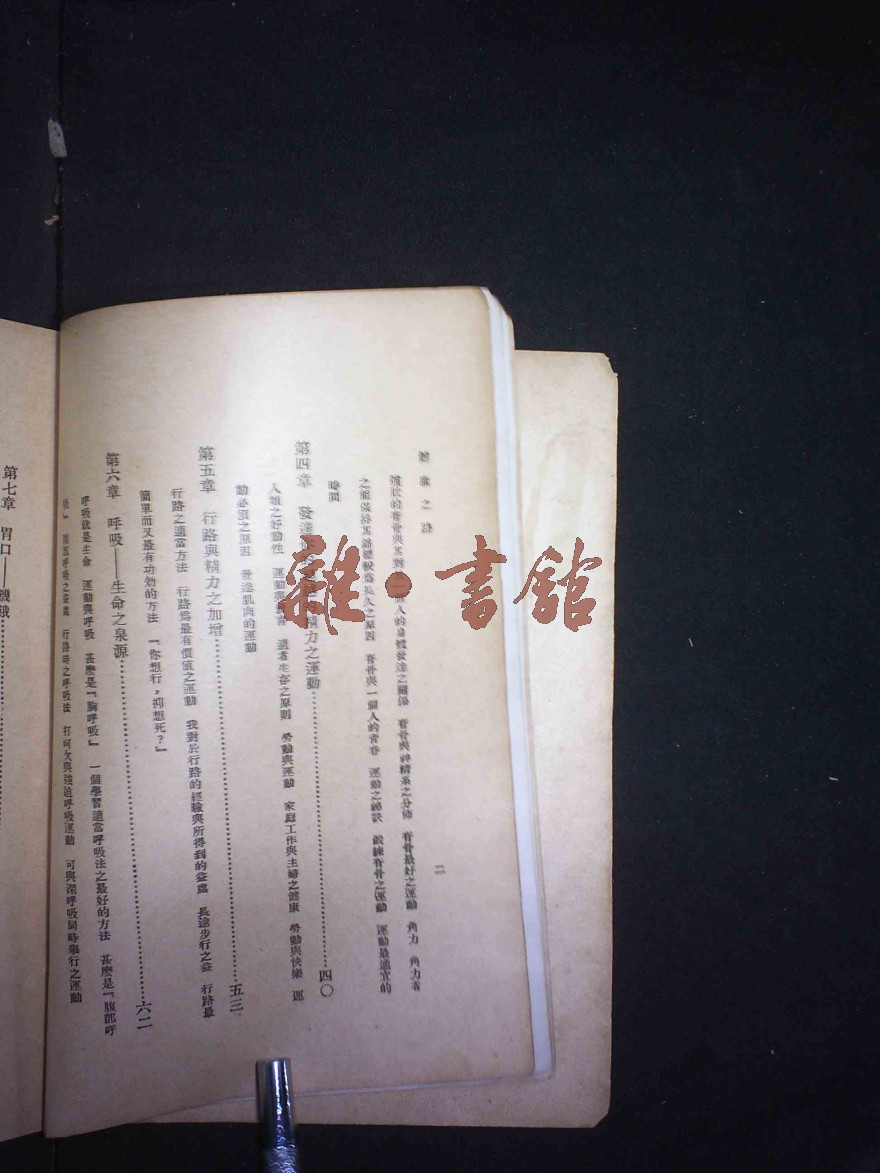 健康之路
二
強壯的脊骨與其對於一個人的身體發達之關係 脊骨與神經系之分佈 脊骨最好之運動 角力 角力者
之能保持其強健較為長久之原因 脊骨與一個人的青春 運動之祕訣 鍛鍊脊骨之運動 運動最適宜的
時間
第四章 發達 精力之運動⋯⋯四〇
人類之好動性 運動與 適者生存之原則 勞動與運動 家庭工作與主婦之健康 勞動與快樂 運
動必須之原因 發達肌肉的運動
第五章 行路與精力之加增⋯⋯五三
行路之適當方法 行路爲最有價值之運動 我對於行路的經驗與所得到的益處 長途步行之益 行路最
簡單而又最有功効的方法 『你想行,抑想死?』
第六章 呼吸——生命之泉源⋯⋯六二
呼吸就是生命 運動與呼吸 甚麼是『胸呼吸』 一個學習適當呼吸法之最好的方法 甚麼是『腹部呼
吸』 腹部呼吸之益處 行路時之呼吸法 打呵欠與強迫呼吸運動 可與深呼吸同時舉行之運動
第七章 胃口——饑餓⋯⋯
雜·書館